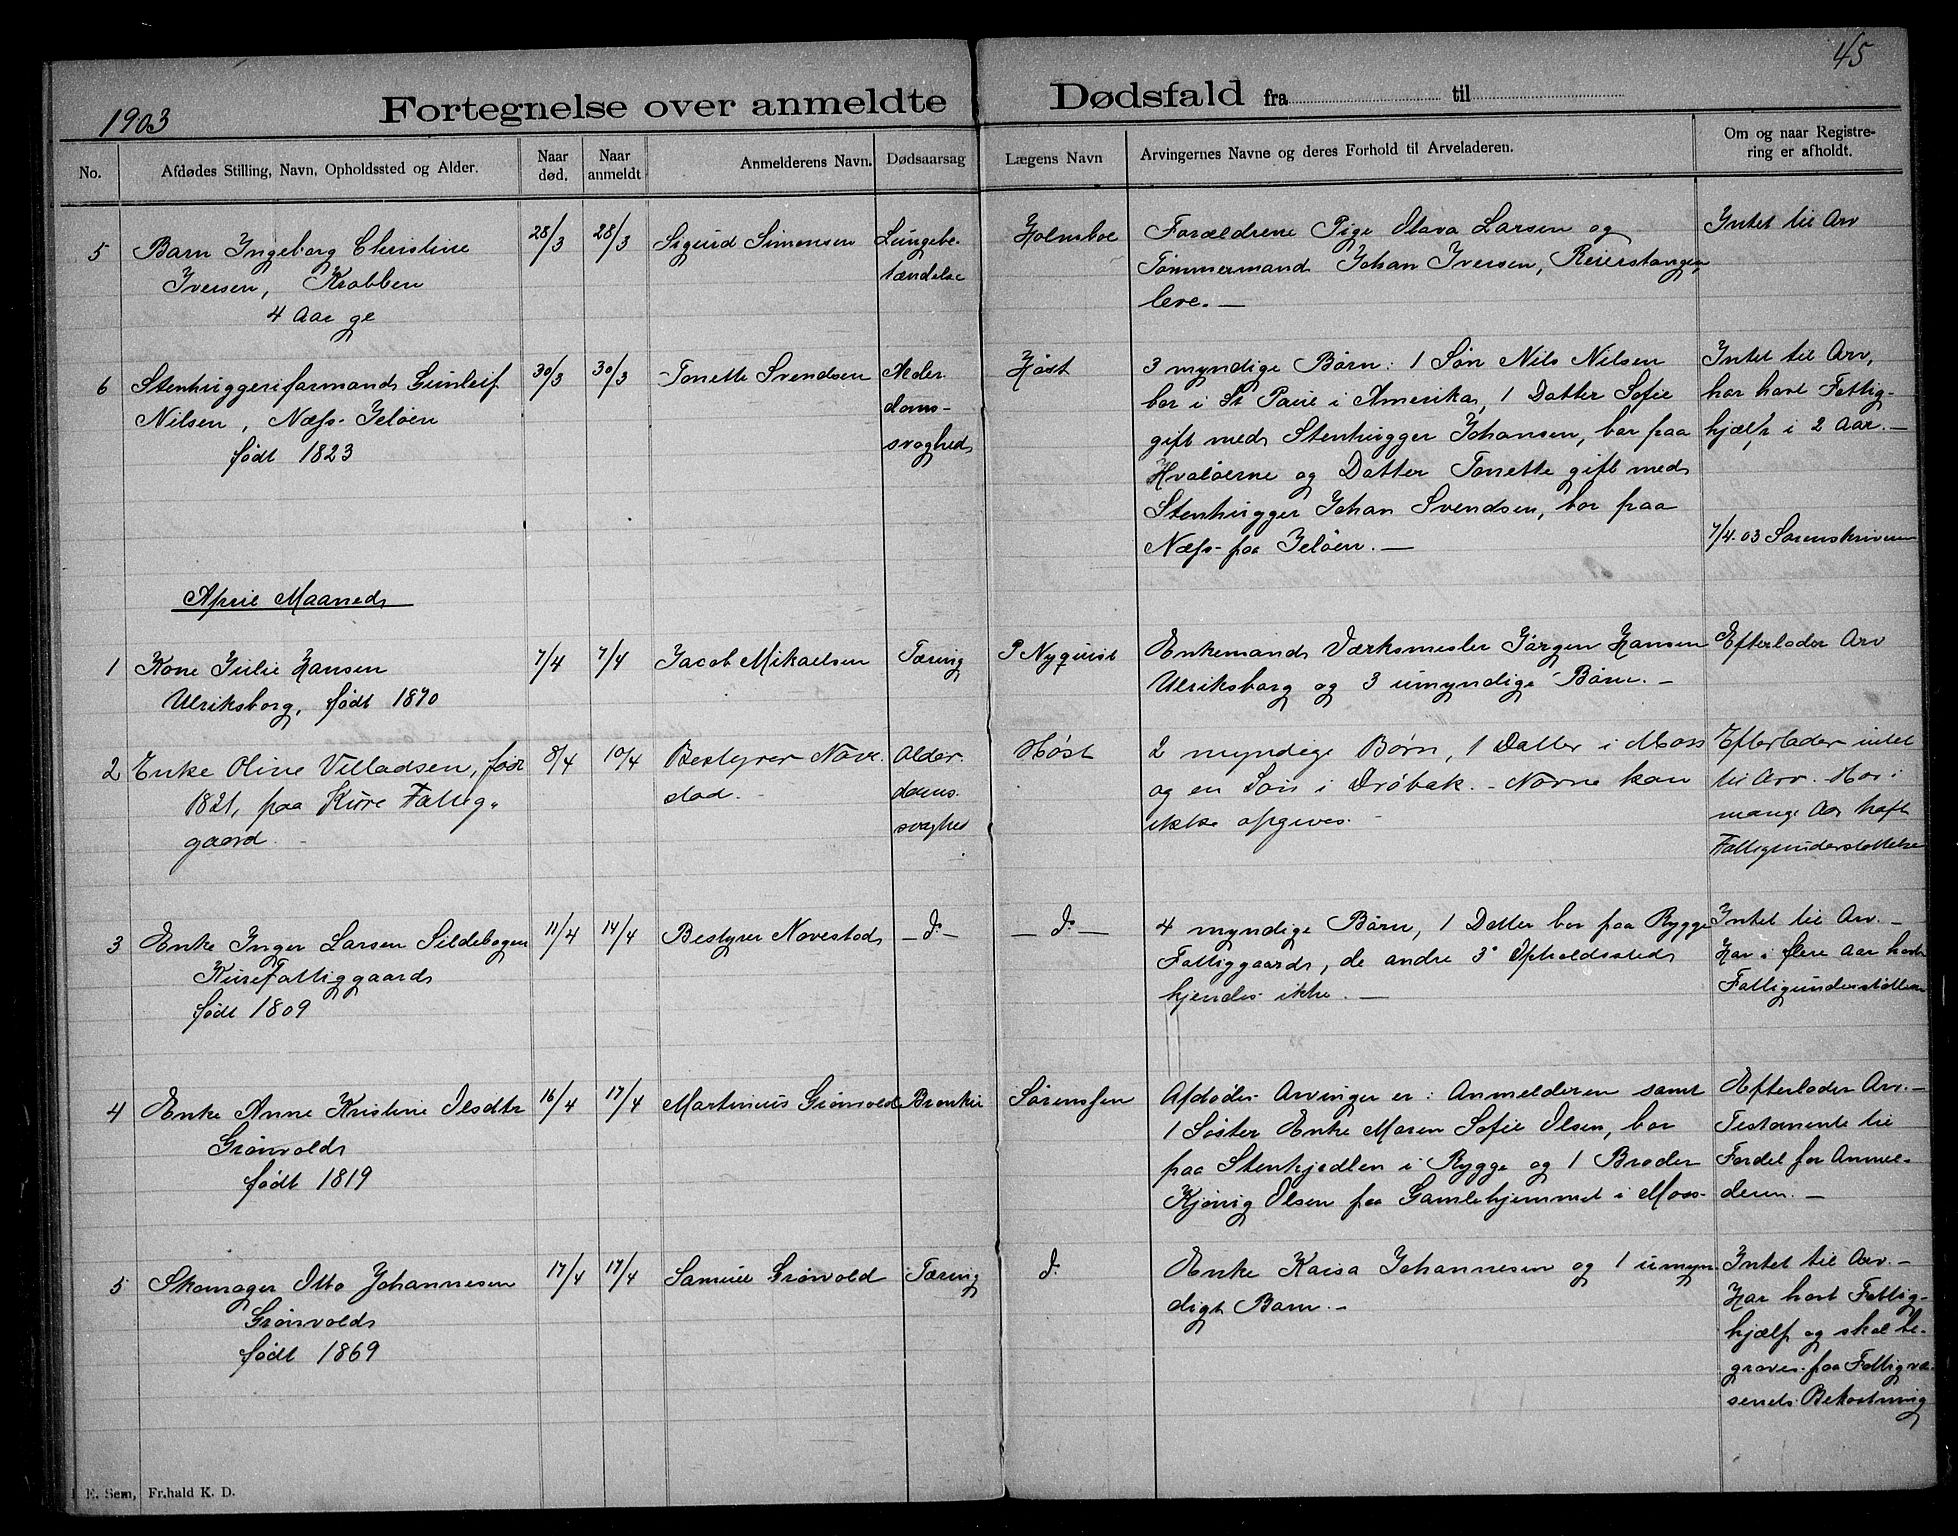 45
1903
Fortegnelse over anmeldte Dødsfald fra til
No.
Afdødes Stilling, Navn, Opholdssted og Alder.
Naar død.
Naar anmeldt
Anmelderens Navn.
Dødsaarsag
Lægens Navn
Arvingernes Navne og deres Forhold til Arveladeren.
Om og naar Registrering er afholdt.
5
Barn Ingeborg Christine
Iversen, Krabben
4 Aar gl
28/3
28/3
Sigurd Simensen
Lungebe-
tændelse
Holmboe
Forældrene Pige Olava Larsen og
Tømmermand Johan Iversen, Reierstangen,
leve. —
Intet til Arv
6
Stenhuggeriformand Gunleif
Nilsen, Næss Jeløen
født 1823
30/3
30/3
Tonette Svendsen
Alder-
doms-
svaghed
Høst
3 myndige Børn: 1 Søn Nils Nilsen
bor i St Paul i Amerika, 1 Datter Sofie
gift med Stenhugger Johansen, bor paa
Hvaløerne og Datter Tonette gift med
Stenhugger Johan Svendsen, bor paa
Næss paa Jeløen. —
Intet til Arv,
har havt Fattig-
hjælp i 2 Aar. —
7/4.03 Sorenskriveren
April Maaned
1
Kone Julie Hansen
Ulriksborg, født 1870
7/4
7/4
Jacob Mikaelsen
Tæring
P Nyquist
Enkemand Værksmester Jørgen Hansen
Ulriksborg og 3 umyndige Børn. —
Efterlader Arv
2
Enke Oline Villadsen, født
1821, paa Kure Fattig-
gaard.
8/4
10/4
Bestyrer Nave-
stad.
Alder-
doms-
svaghed
Høst
2 myndige Børn, 1 Datter i Moss
og en Søn i Drøbak. - Navne kan
ikke opgives.
Efterlader intet
til Arv. Har i
mange Aar haft
Fattigunderstøttelse
3
Enke Inger Larsen Sildebogen
Kure Fattiggaard
født 1809
11/4
14/4
Bestyrer Navestad
— do —
— do —
4 myndige Børn, 1 Datter bor paa Rygge
Fattiggaard, de andre 3s Opholdssted
kjendes ikke. —
Intet til Arv. —
Har i flere Aar havt
Fattigunderstøttelse
4
Enke Anne Kristine Olsdtr
Grønvold
født 1819
16/4
17/4
Martinius Grønvold
Bronkit
Sørenssen
Afdødes Arvinger er: Anmelderen samt
1 Søster Enke Maren Sofie Olsen, bor
paa Stenkjedlen i Rygge og 1 Broder
Kjønig Olsen paa Gamlehjemmet i Moss.
Efterlader Arv. —
Testamente til
Fordel for Anmel-
deren. —
5
Skomager Otto Johannesen
Grønvold
født 1869
17/4
17/4
Samuel Grønvold
Tæring
do
Enke Kaisa Johannesen og 1 umyn
digt Barn. —
Intet til Arv. —
Har havt Fattig-
hjælp og skal be-
graves paa Fattigvæ-
senets Bekostning
E. Sem, Fr.hald K. D.